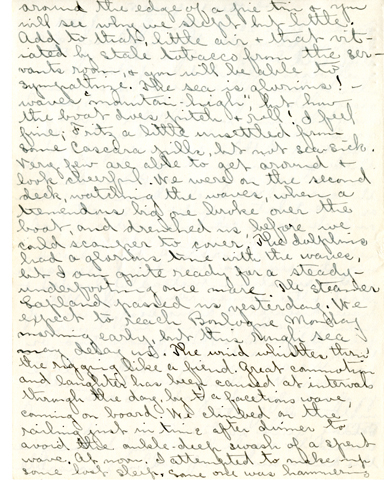 around the edge of a pie tin & you
will see why we slept but little.
Add to that, little air & that vit-
iated by stale tobacco from the ser-
vants room, & you will be able to
sympathize. The sea is glorious! -
waves "mountain-high", but how
the boat does pitch & roll! I feel
fine; Fritz a little unsettled from
some Cascara pills, but not sea sick.
Very few are able to get around &
look cheerful. We were on the second
deck, watching the waves, when a
tremendous big one broke over the
boat, and drenched us, before we
could scamper to cover. The dolphins
had a glorious time with the waves,
but I am quite ready for a steady-
underfooting once more. The steamer
Lapland passed us yesterday. We
expect to reach Boulogne Monday
morning early, but this rough sea
may delay us. The wind whistles thru
the rigging like a fiend. Great commotion
and laughter has been caused at intervals
through the day, by a facetious wave,
coming on board. We climbed on the
railing just in time after dinner to
avoid the ankle-deep swash of a spent
wave. At noon, I attempted to make up
some lost sleep. Some one was hammering